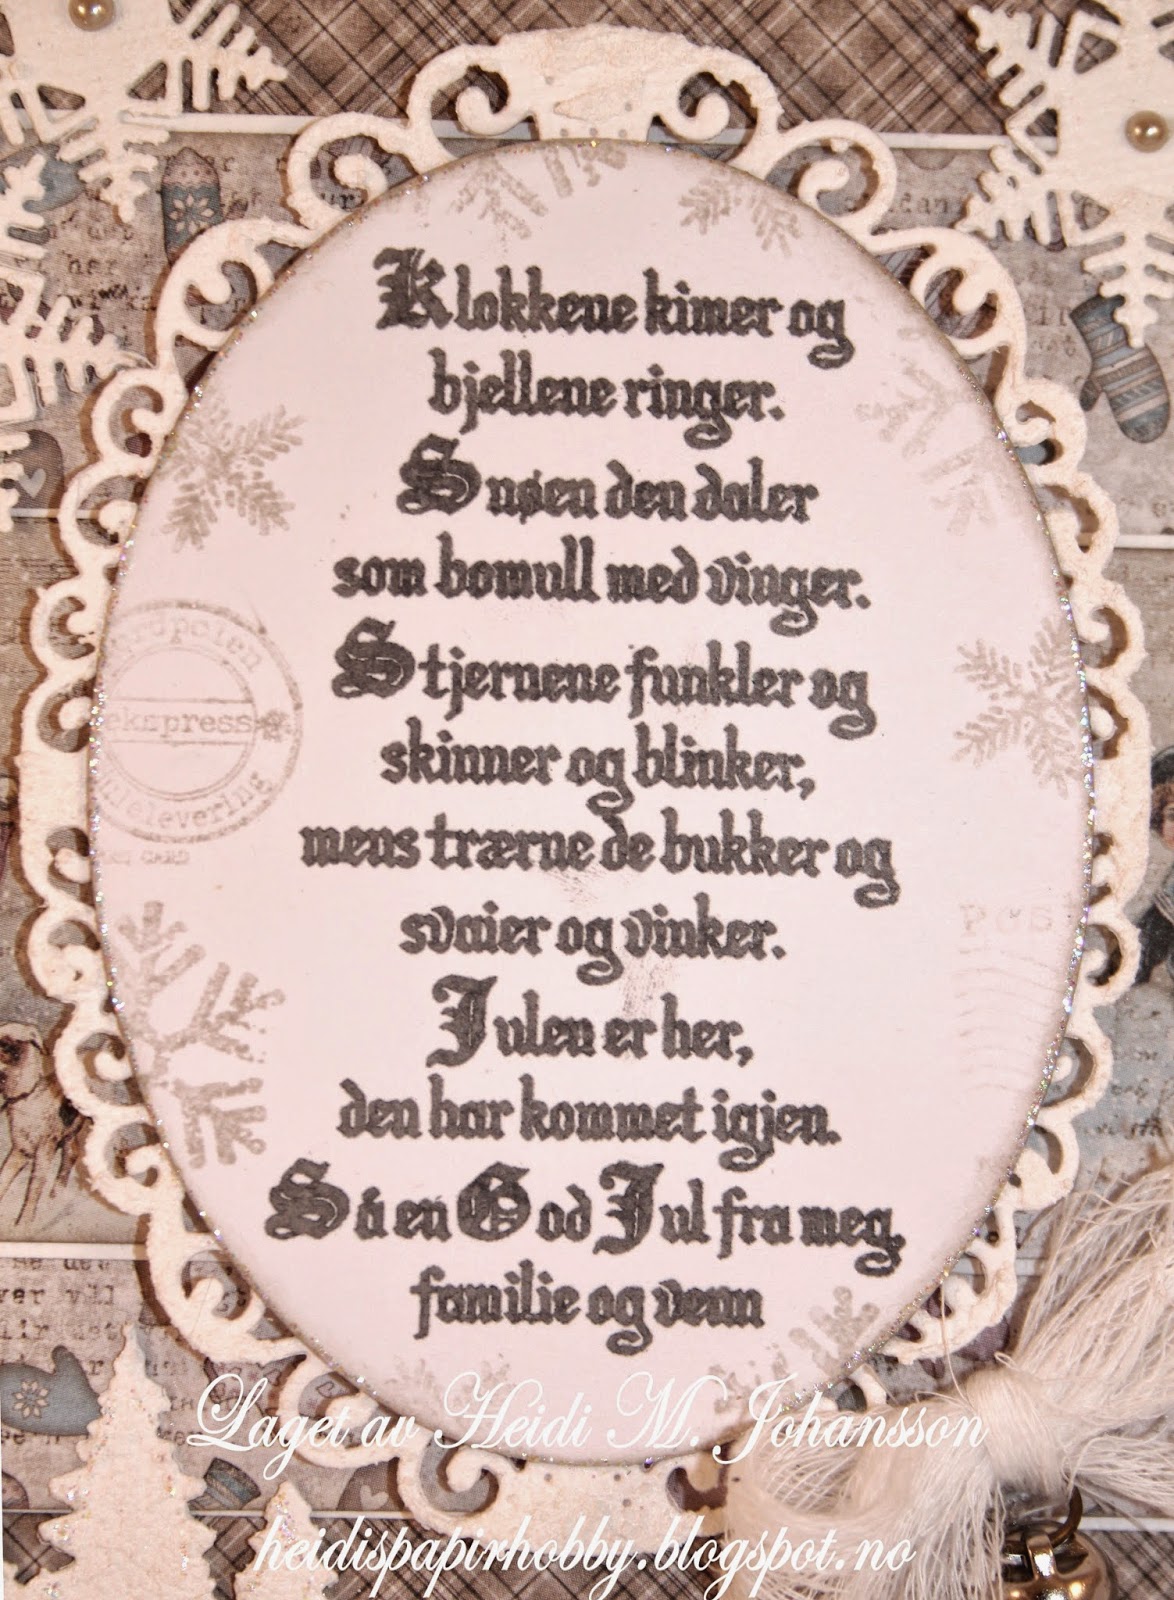 Klokkene kimer og
bjellene ringer.
Snøen den daler
som bomull med vinger.
Stjernene funkler og
skinner og blinker,
mens trærne de bukker og
svaier og vinker.
Julen er her,
den har kommet igjen.
Så en God Jul fra meg,
familie og venn
ekspress
Laget av Heidi M. Johansson
heidispapirhobby.blogspot.no